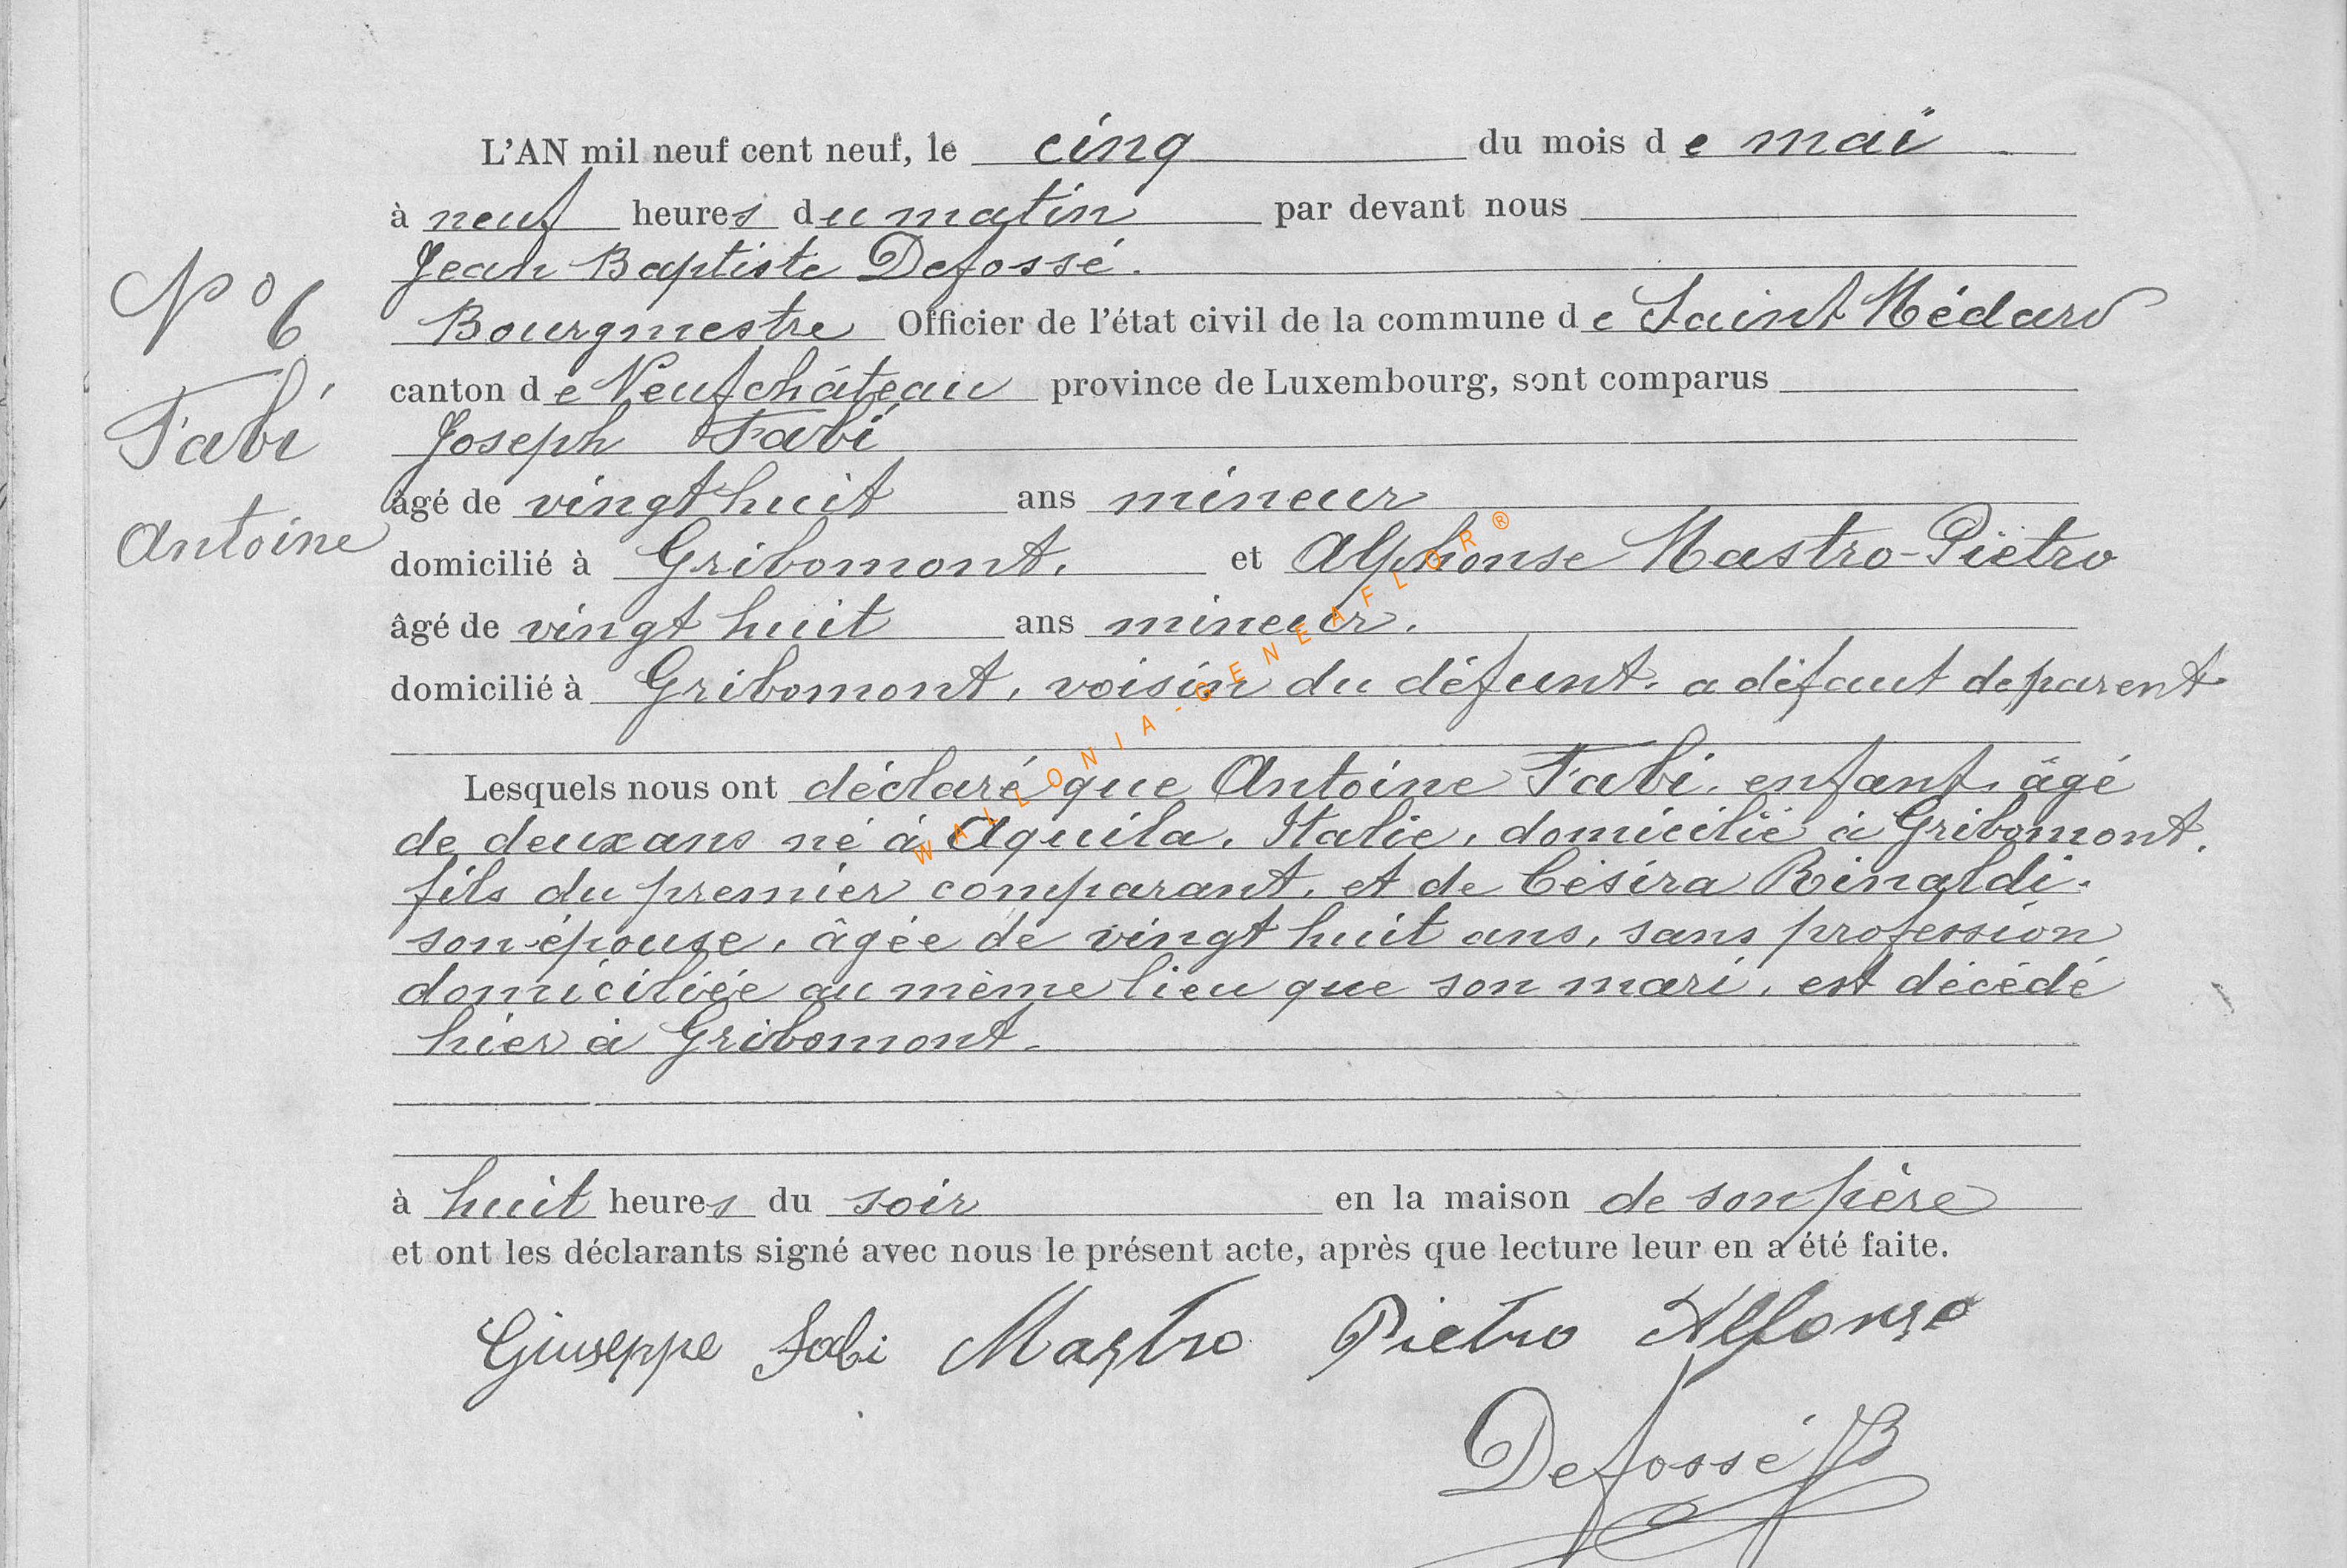 L'AN mil neuf cent neuf, le cinq du mois de mai
à neuf heures du matin par devant nous
Jean Baptiste Defossé.
Bourgmestre Officier de l'état civil de la commune de Saint Médard
canton de Neufchâteau province de Luxembourg, sont comparus
Joseph Fabi
âgé de vingt huit ans mineur
domicilié à Gribomont. et Alphonse Mastro-Pietro
âgé de vingt huit ans mineur.
domicilié à Gribomont, voisin du défunt. a défaut de parent
Lesquels nous ont déclaré que Antoine Fabi. enfant. âgé
de deux ans né à Aquila. Italie, domicilié à Gribomont.
fils du premier comparant, et de Césira Rinaldi.
son épouse, âgée de vingt huit ans, sans profession
domiciliée au même lieu que son mari, est décédé
hier à Gribomont.
à huit heures du soir en la maison de son père
et ont les déclarants signé avec nous le présent acte, après que lecture leur en a été faite.
Giuseppe Fabi Mastro Pietro Alfonso
Defossé JB
N° 6
Fabi
Antoine
WALLONIA-GENEAFLOR®